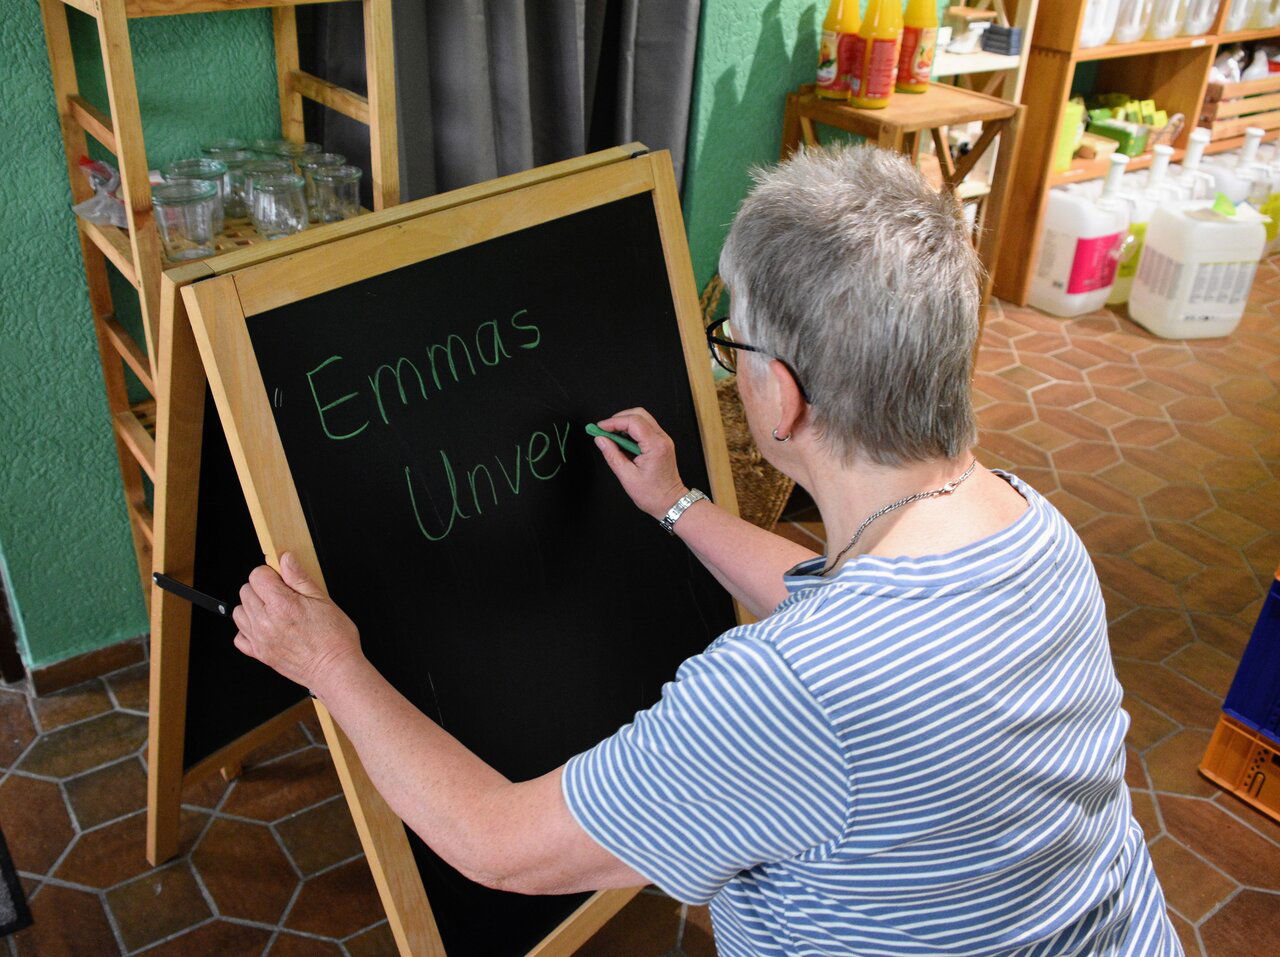 Emmas
Unver